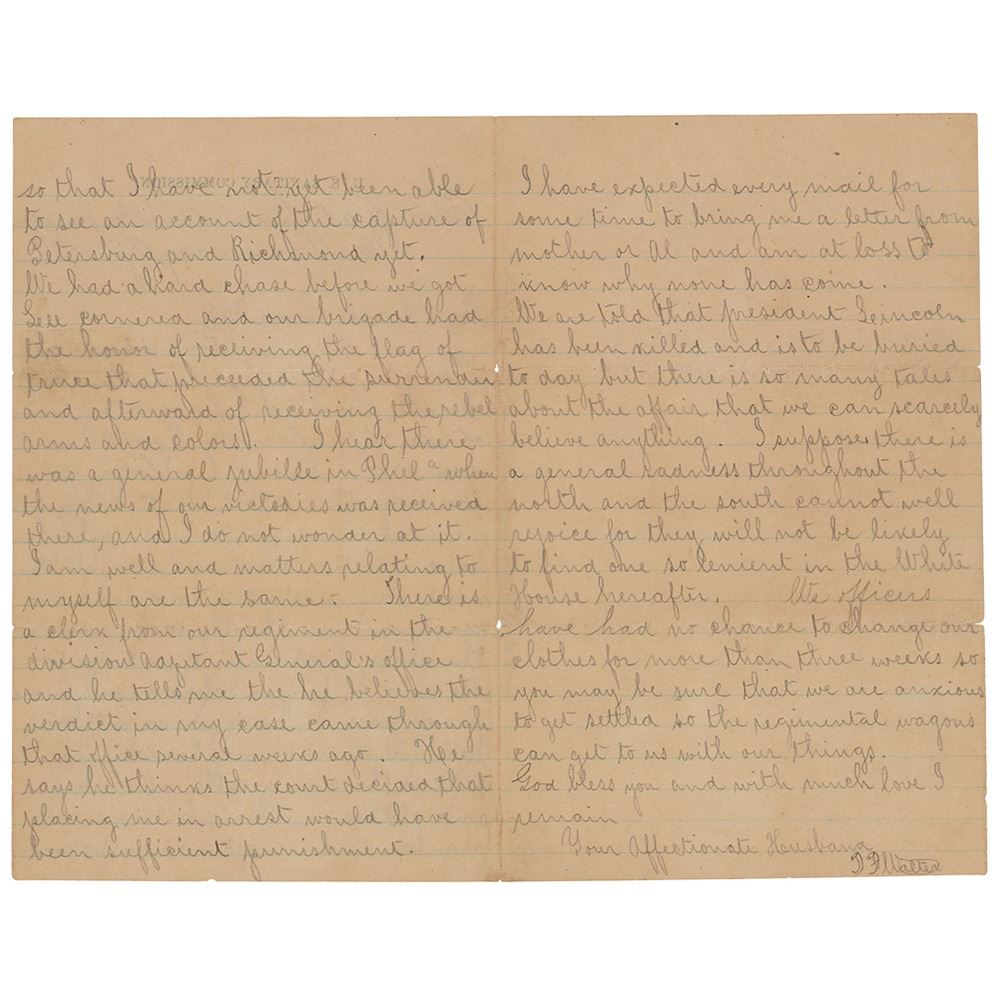 so that I have not yet been able
to see an account of the capture of
Petersburg and Richmond yet.
We had a hard chase before we got
Lee cornered and our brigade had
the honor of receiving the flag of
truce that preceeded the surrender
and afterward of receiving the rebel
arms and colors. I hear there
was a general jubille in Phil a when
the news of our victories was received
there, and I do not wonder at it.
I am well and matters relating to
myself are the same. There is
a clerk from our regiment in the
division adjutant General's office
and he tells me the he believes the
verdict in my case came through
that office several weeks ago. He
says he thinks the court decided that
placing me in arrest would have
been sufficient punishment.
I have expected every mail for
some time to bring me a letter from
mother or Al and am at loss to
know why none has come.
We are told that president Lincoln
has been killed and is to be buried
to day but there is so many tales
about the affair that we can scarcely
believe anything. I suppose there is
a general sadness throughout the
north and the south cannot well
rejoice for they will not be likely
to find one so lenient in the White
House hereafter. We officers
have had no chance to change our
clothes for more than three weeks so
you may be sure that we are anxious
to get settled so the regimental wagons
can get to us with our things.
God bless you and with much love I
remain
Your Affectionate Husband
T F Walter